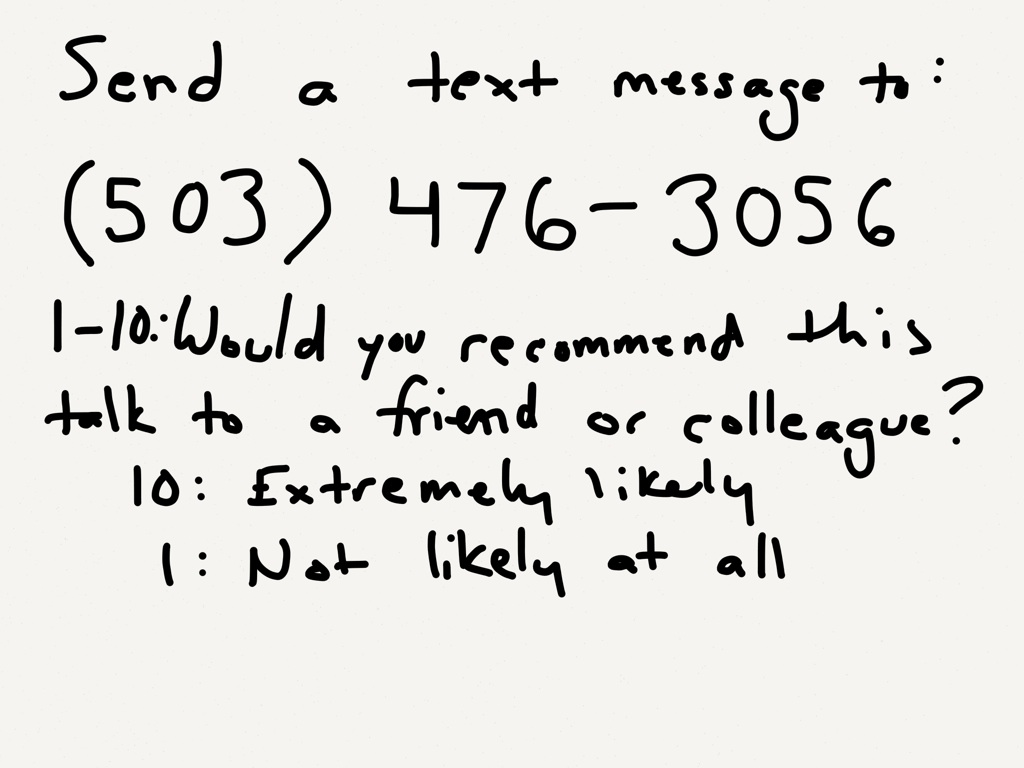 Send a text message to:
(503) 476-3056
1-10: Would you recommend this
talk to a friend or colleague?
10: Extremely likely
1: Not likely at all